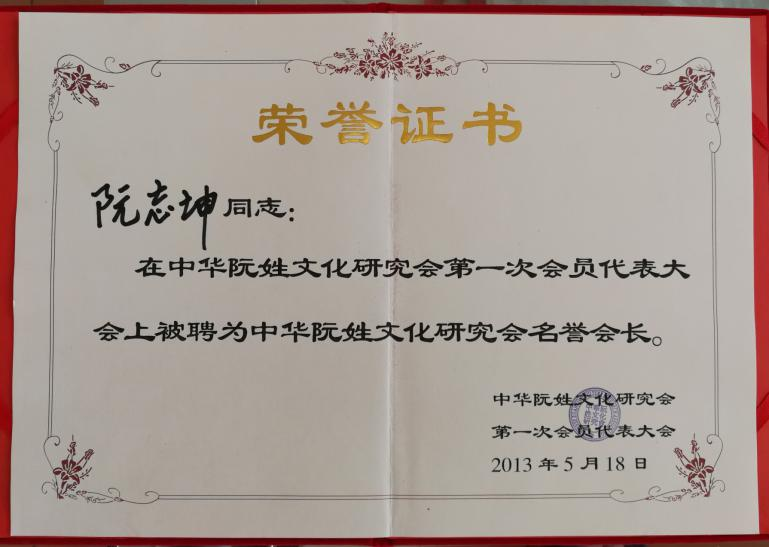 荣誉证书
阮志坤同志：
在中华阮姓文化研究会第一次会员代表大
会上被聘为中华阮姓文化研究会名誉会长。
中华阮姓文化研究会
第一次会员代表大会
2013年5月18日